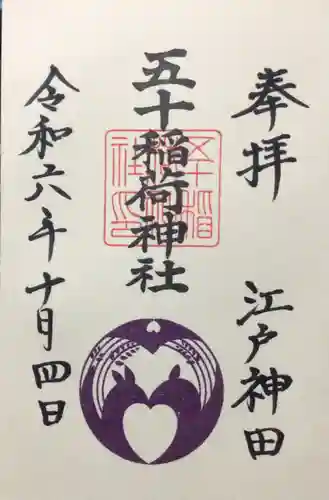 奉拝
江戸神田
五十稲荷神社
令和六年十月四日